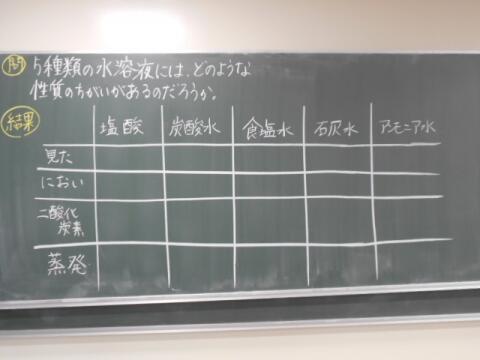 問 5種類の水溶液には、どのような
性質のちがいがあるのだろうか。
結果
塩酸 炭酸水 食塩水 石灰水 アンモニア水
見た
におい
二酸化
炭素
蒸発